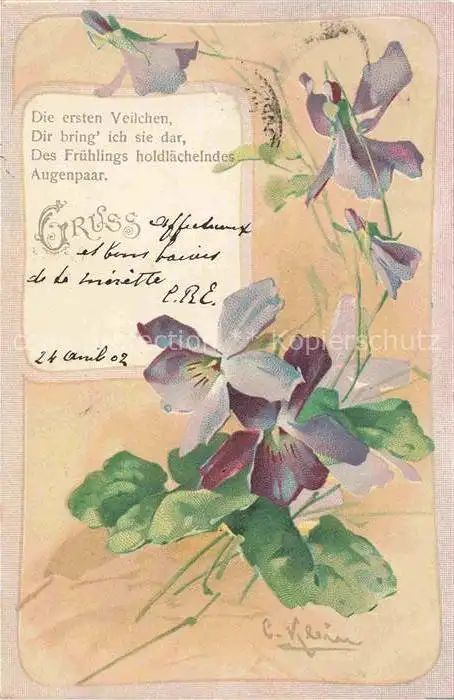 Die ersten Veilchen,
Dir bring' ich sie dar,
Des Frühlings holdlächelndes
Augenpaar.
GRUSS affectueux
et bons baisers
de ta
C.R.E.
24 avril 02
C. Klein